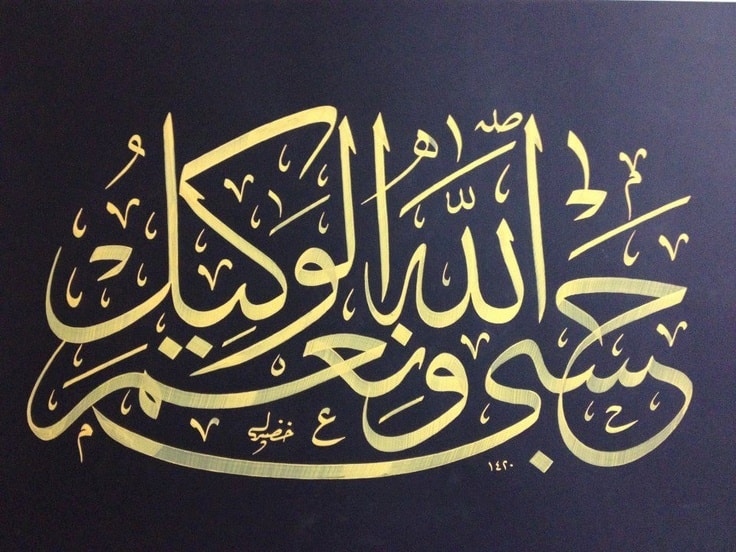 حسبى الله ونعم الوكيل
١٤٢٠